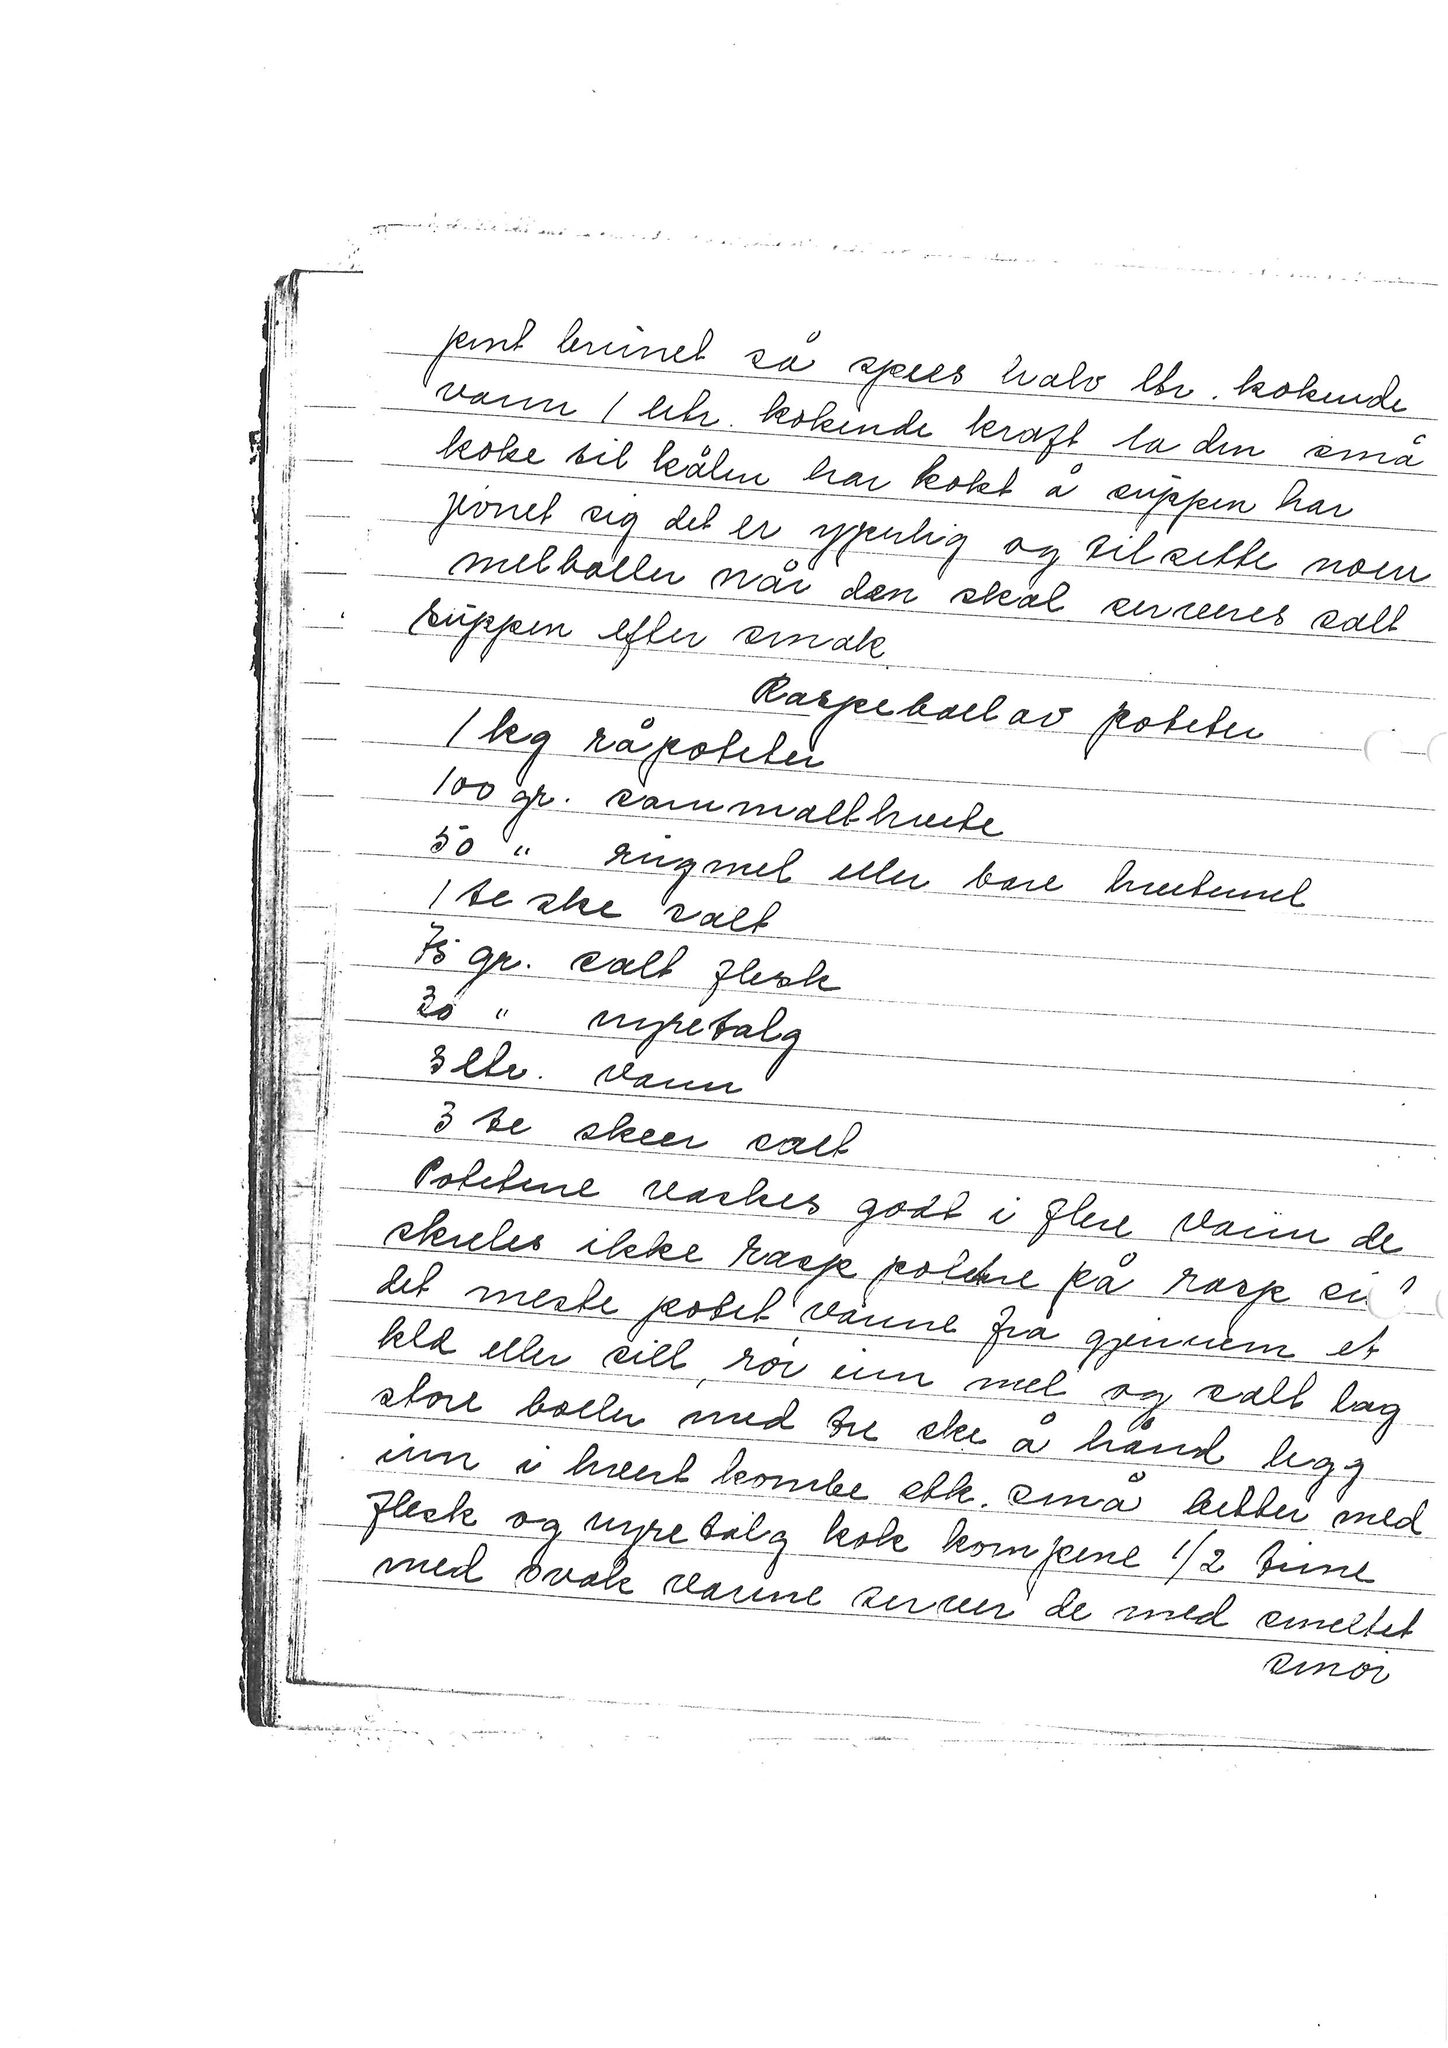 pent brunet så spees halv ltr. kokende
vann 1 ltr. kokende kraft la den små
koke til kålen har kokt å suppen har
jevnet sig det er ypperlig og tilsette noen
melboller når den skal serveres salt
suppen efter smak
Raspeball av poteter
1 kg råpoteter
100 gr. sammalthvete
50 " rugmel eller bare hvetemel
1 te ske salt
75 gr. salt flesk
30 " nyretalg
3 ltr. vann
3 te skeer salt
Potetene vaskes godt i flere vann de
skreles ikke rasp potetene på rasp
det meste potet vanne fra gjennem et
kld eller sill, rør inn mel og salt lag
store boller med tre ske å hånd legg
inn i hvert kombe stk. små biter med
flesk og nyretalg kok kompene 1/2 time
med svak varme server de med smeltet
smør